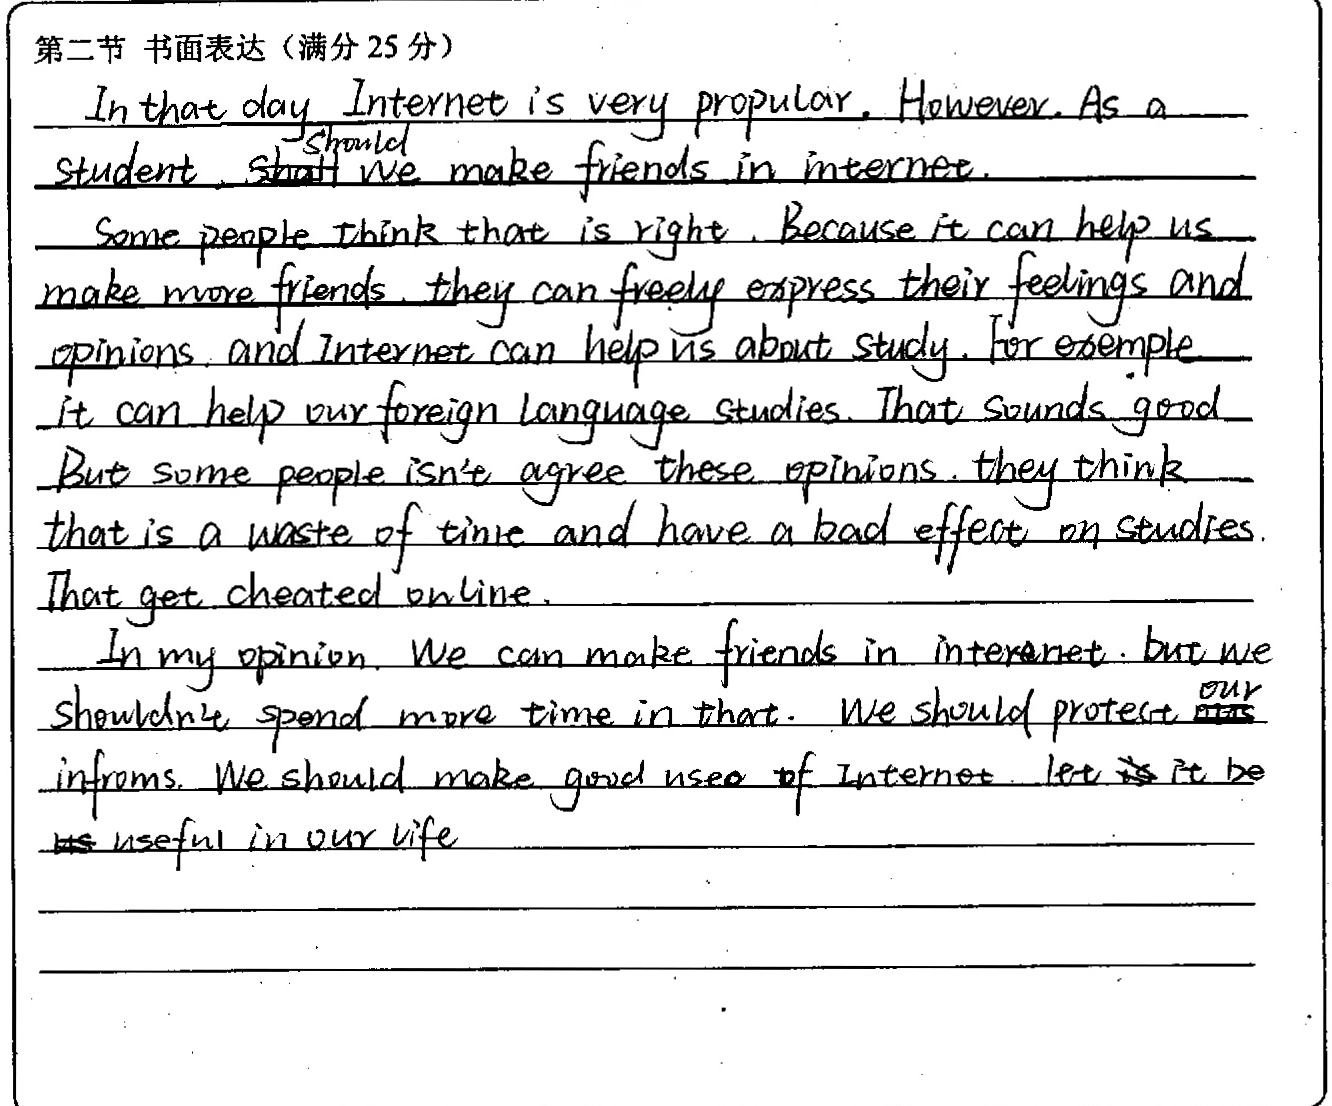 第二节 书面表达（满分 25 分）
In that day Internet is very propular. However. As a
student, should we make friends in internet.
Some people think that is right. Because it can help us
make more friends. they can freely express their feelings and
opinions. and Internet can help us about study. For exemple
it can help our foreign language studies. That sounds good
But some people isn't agree these opinions. they think
that is a waste of time and have a bad effect on studies.
That get cheated online.
In my opinion. We can make friends in interenet. but we
shouldn't spend more time in that. We should protect our
infroms. We should make good use of Internet let it be
useful in our life